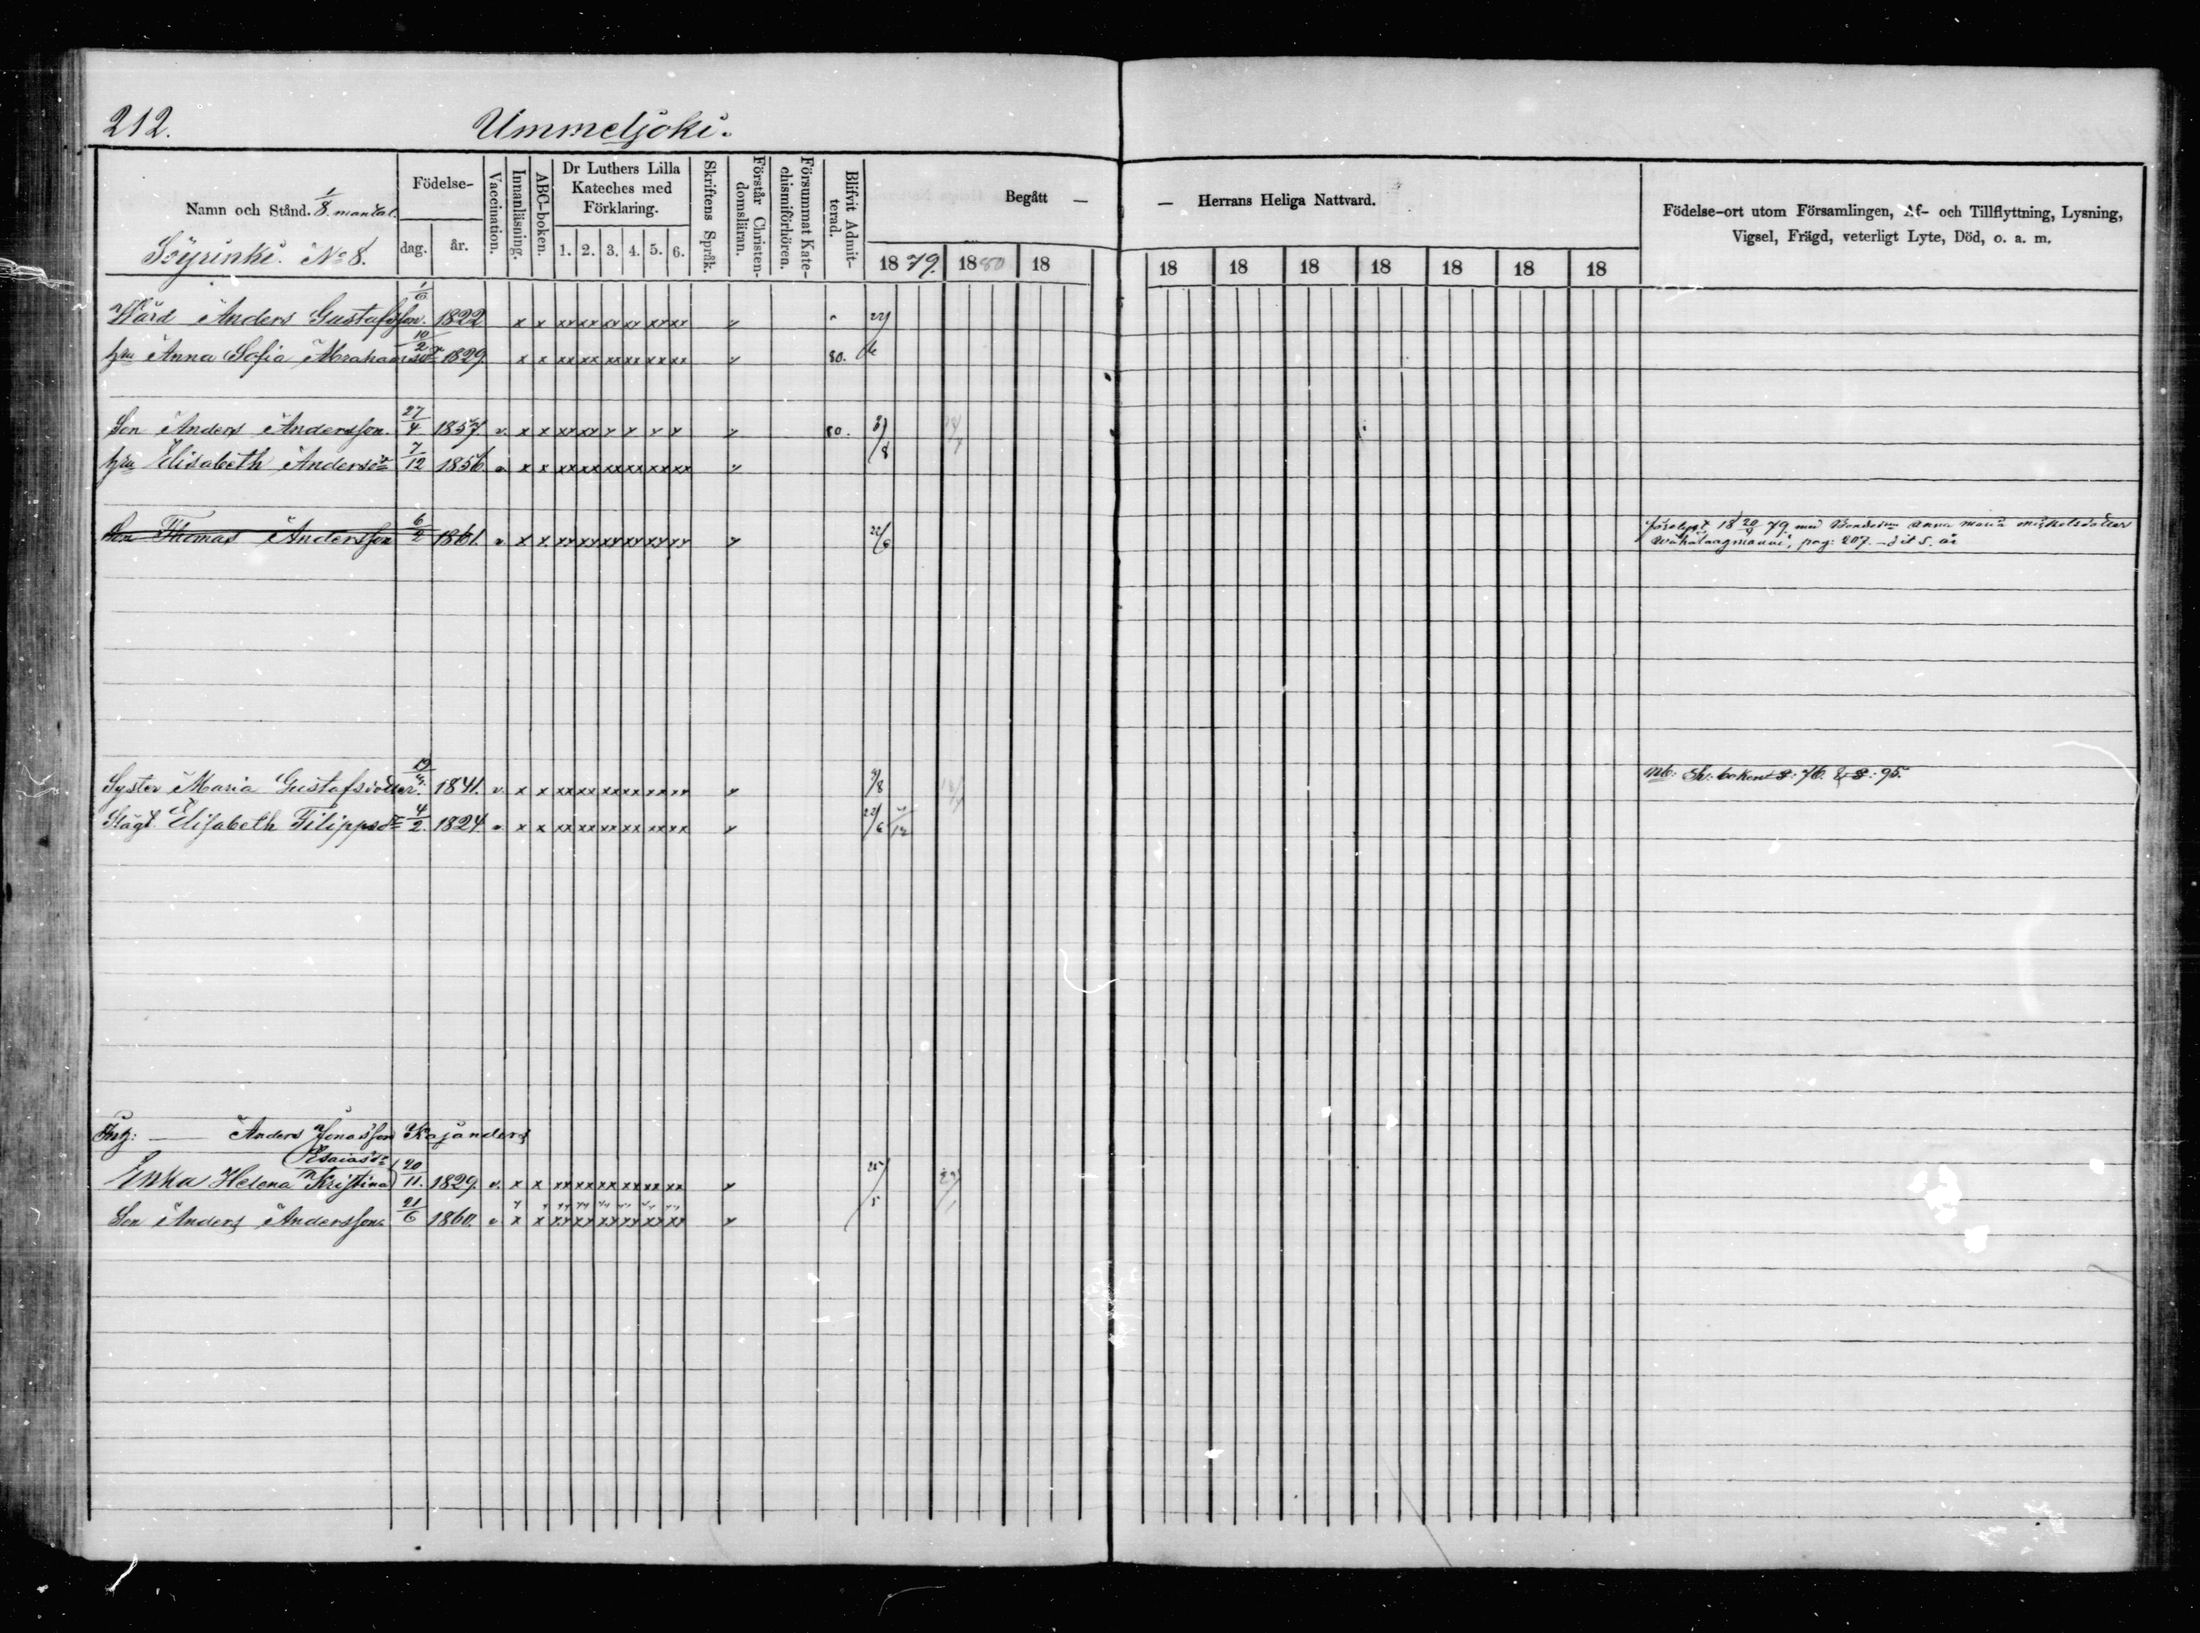 212. Ummeljoki.
Namn och Stånd. 1/8. mantal.
Söyrinki. No 8.
Födelse-
dag. år.
Vaccination.
Innanläsning.
ABC-boken.
Dr Luthers Lilla
Kateches med
Förklaring.
1. 2. 3. 4. 5. 6.
Skriftens Språk.
Förstår Christen-
domsläran.
Försummat Kate-
chismiförhören.
Blifvit Admit-
terad.
Begått — — Herrans Heliga Nattvard.
18 79. 18 80 18 18 18 18 18 18 18 18
Födelse-ort utom Församlingen, Af- och Tillflyttning, Lysning,
Vigsel, Frägd, veterligt Lyte, Död, o. a. m.
Wärd Anders Gustafsson. 1/6 1822 x x xx xx xx xx xx xx 22/
hu Anna Sofia Abrahamsdr 10/2 1829. x x xx xx xx xx xx xx 80. 6
Son Anders Andersson. 27/4 1857. v. x x 80. 3/
hu Elisabeth Andersdr 7/12 1856 x x xx xx xx xx xx xx 8
Son Thomas Andersson 6/2 1861. x x 22/6 18 20/9 79. med Anna Maria Michelsdotter
pag: 207.
Syster Maria Gustafsdotter. 1841. v. x x xx xx xx xx xx xx 3/8 Nb: 76. 95.
Elisabeth Filippsdr 4/2. 1824. x x xx xx xx xx xx xx 22/6
Inh: — Anders Jonasson Kajanders
Esaiasdr
Enka Helena Kristina 20/11. 1829. v. x x xx xx xx xx xx xx 25/ 29/
Son Anders Andersson 21/6 1860. x x xx xx xx xx xx xx 5 1